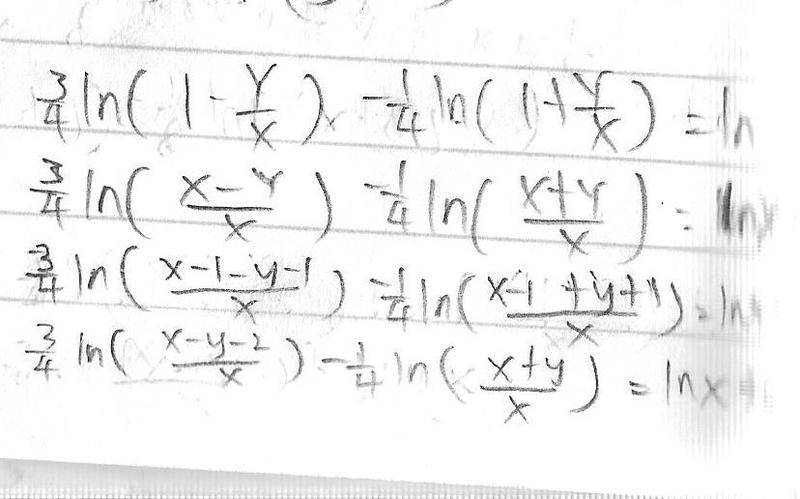 3/4 ln( 1 - Y/X ) - 1/4 ln( 1 + Y/X ) = ln
3/4 ln( (X-Y)/X ) - 1/4 ln( (X+Y)/X ) = ln
-3/4 ln( (x-1-y-1)/x ) - 1/4 ln( (x-1+y+1)/x ) = ln
-3/4 ln( (x-y-2)/x ) - 1/4 ln( (x+y)/x ) = lnx